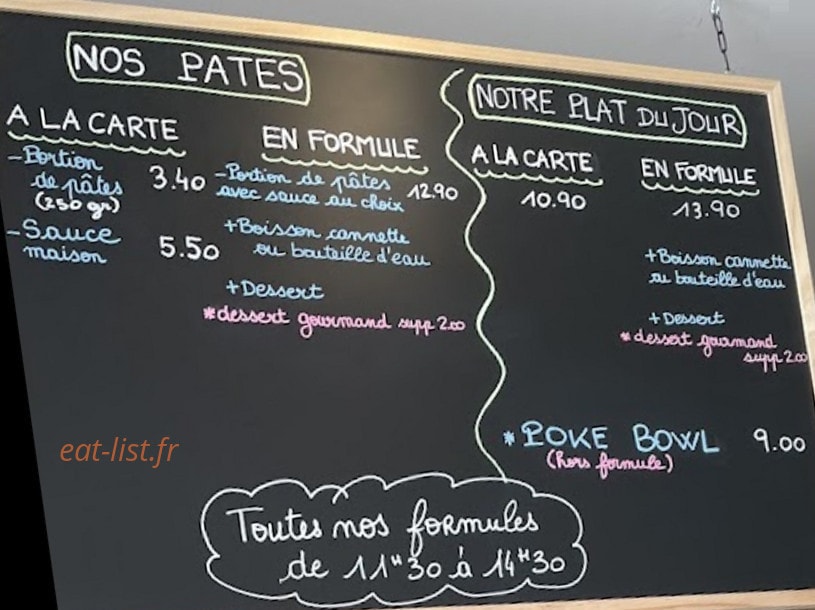 NOS PATES
A LA CARTE
-Portion
de pâtes 3.40
(250 gr)
-Sauce
maison 5.50
EN FORMULE
-Portion de pâtes
avec sauce au choix 12.90
+Boisson cannette
ou bouteille d'eau
+Dessert
*dessert gourmand supp 2.00
NOTRE PLAT DU JOUR
A LA CARTE
10.90
EN FORMULE
13.90
+Boisson cannette
ou bouteille d'eau
+Dessert
*dessert gourmand
supp 2.00
*POKE BOWL 9.00
(hors formule)
Toutes nos formules
de 11H30 à 14H30
eat-list.fr